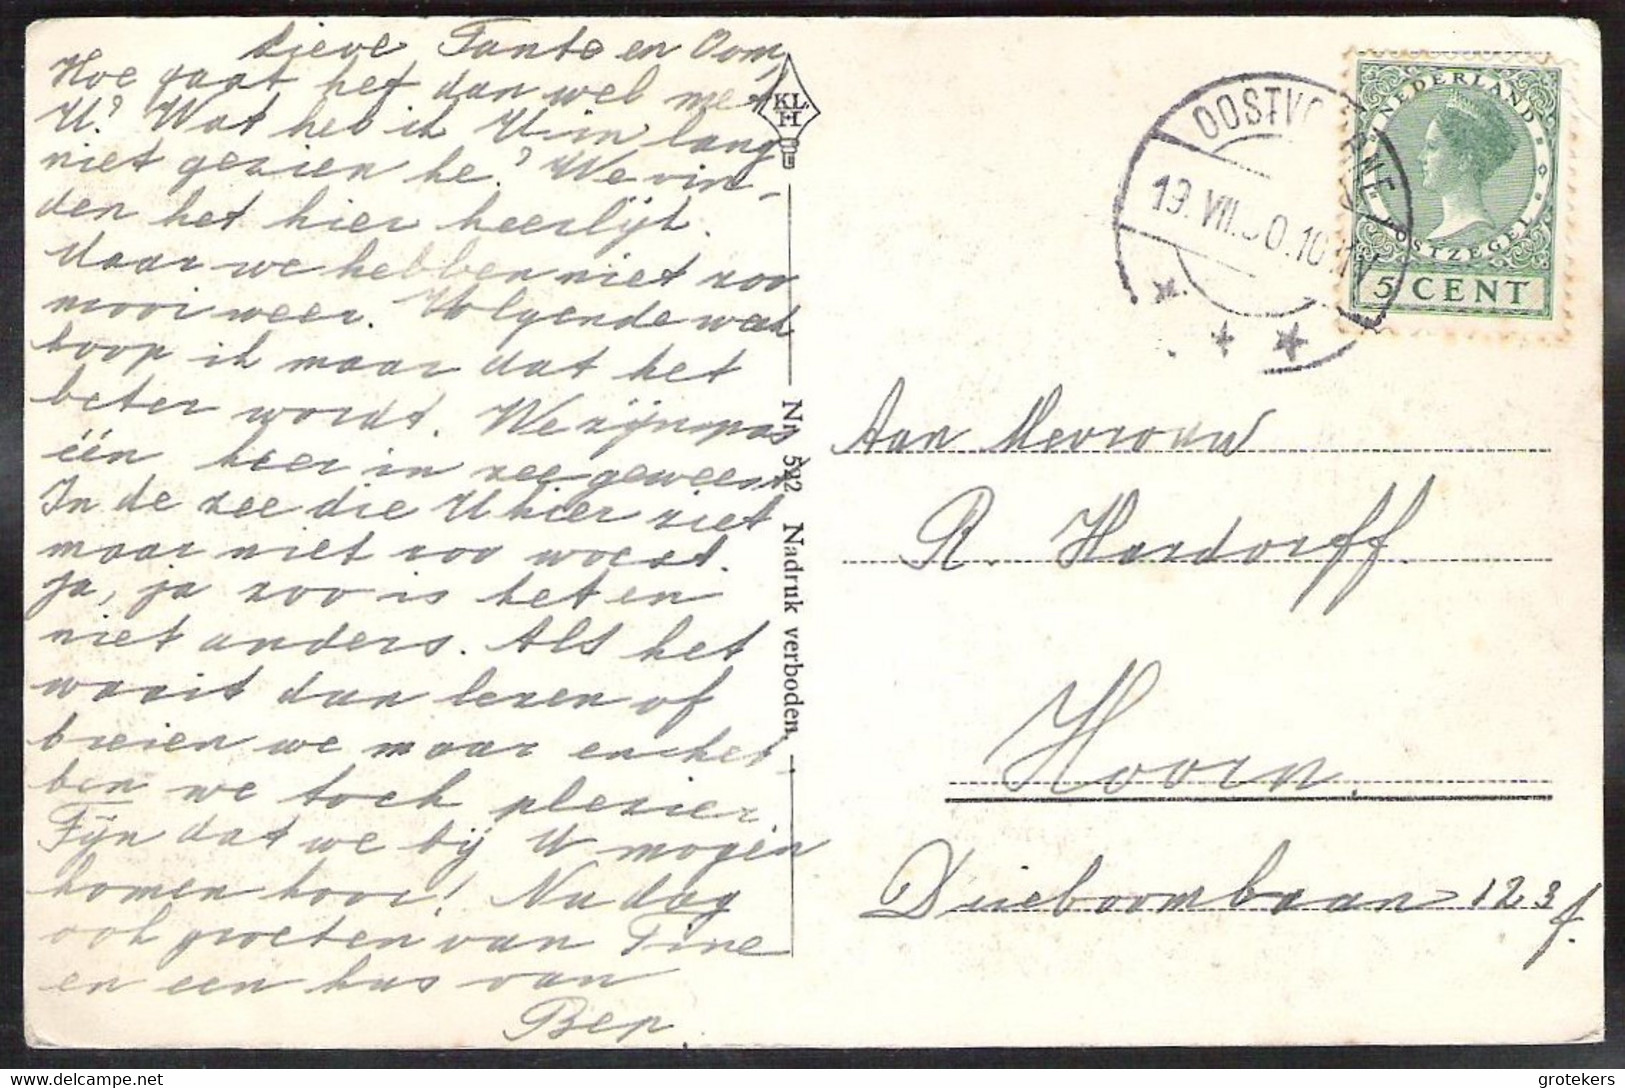 Lieve Tante en Oom,
Hoe gaat het dan wel met
U? Wat heb ik U in lang
niet gezien he? We vin-
den het hier heerlijk.
Maar we hebben niet zoo
mooi weer. Volgende week
hoop ik maar dat het
beter wordt. We zijn pas
één keer in zee geweest
In de zee die U hier ziet
maar niet zoo woest.
ja, ja zoo is het en
niet anders. Als het
waait dan lezen of
breien we maar en heb-
ben we toch plezier.
Fijn dat we bij U mogen
komen hoor! Nu dag
ook groeten van Tine
en een kus van
Bep
KL.
H
Nr. 522 Nadruk verboden
OOSTVOORNE
19.VII. 0.10
NEDERLAND
POSTZEGEL
5 CENT
Aan Mevrouw
R. Hardorff
Hoorn.
Drieboomlaan 123 f.
grotekers